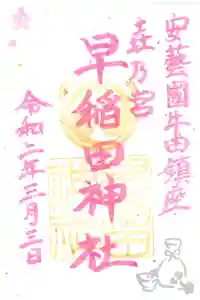 安藝國牛田鎮座
㐂乃宮
早稲田神社
令和二年三月三日